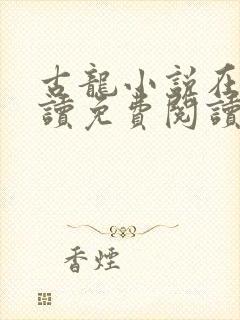 古龍小說在
讀免費閱讀
香煙